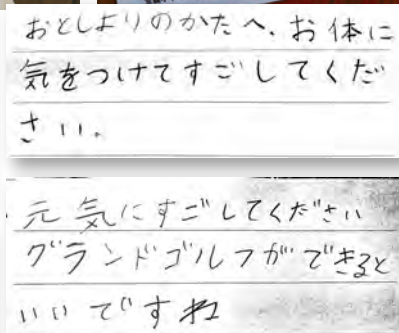 おとしよりのかたへ、お体に
気をつけてすごしてくだ
さい、
元気にすごしてください
グランドゴルフができると
いいですね